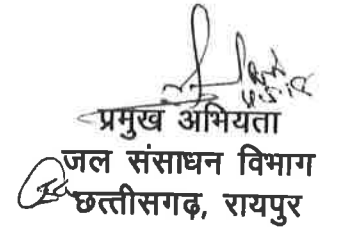 प्रमुख अभियता
जल संसाधन विभाग
छत्तीसगढ़, रायपुर